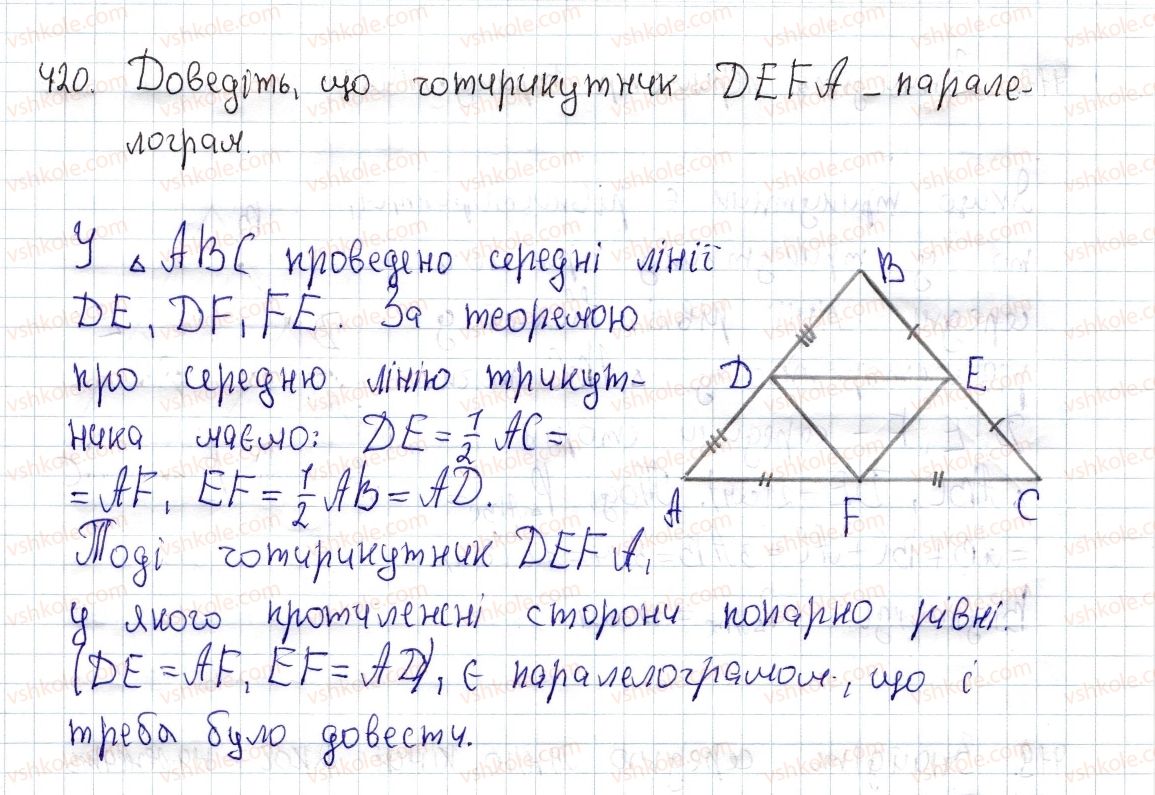 420. Доведіть, що чотирикутник DEFA – парале-
лограм.
У △ ABC проведено середні лінії
DE, DF, FE. За теоремою
про середню лінію трикут-
ника маємо: DE = 1/2 AC =
= AF, EF = 1/2 AB = AD.
Тоді чотирикутник DEFA,
у якого протилежні сторони попарно рівні
(DE = AF, EF = AD), є паралелограмом, що і
треба було довести.
B
D
E
A
F
C
vshkole.com